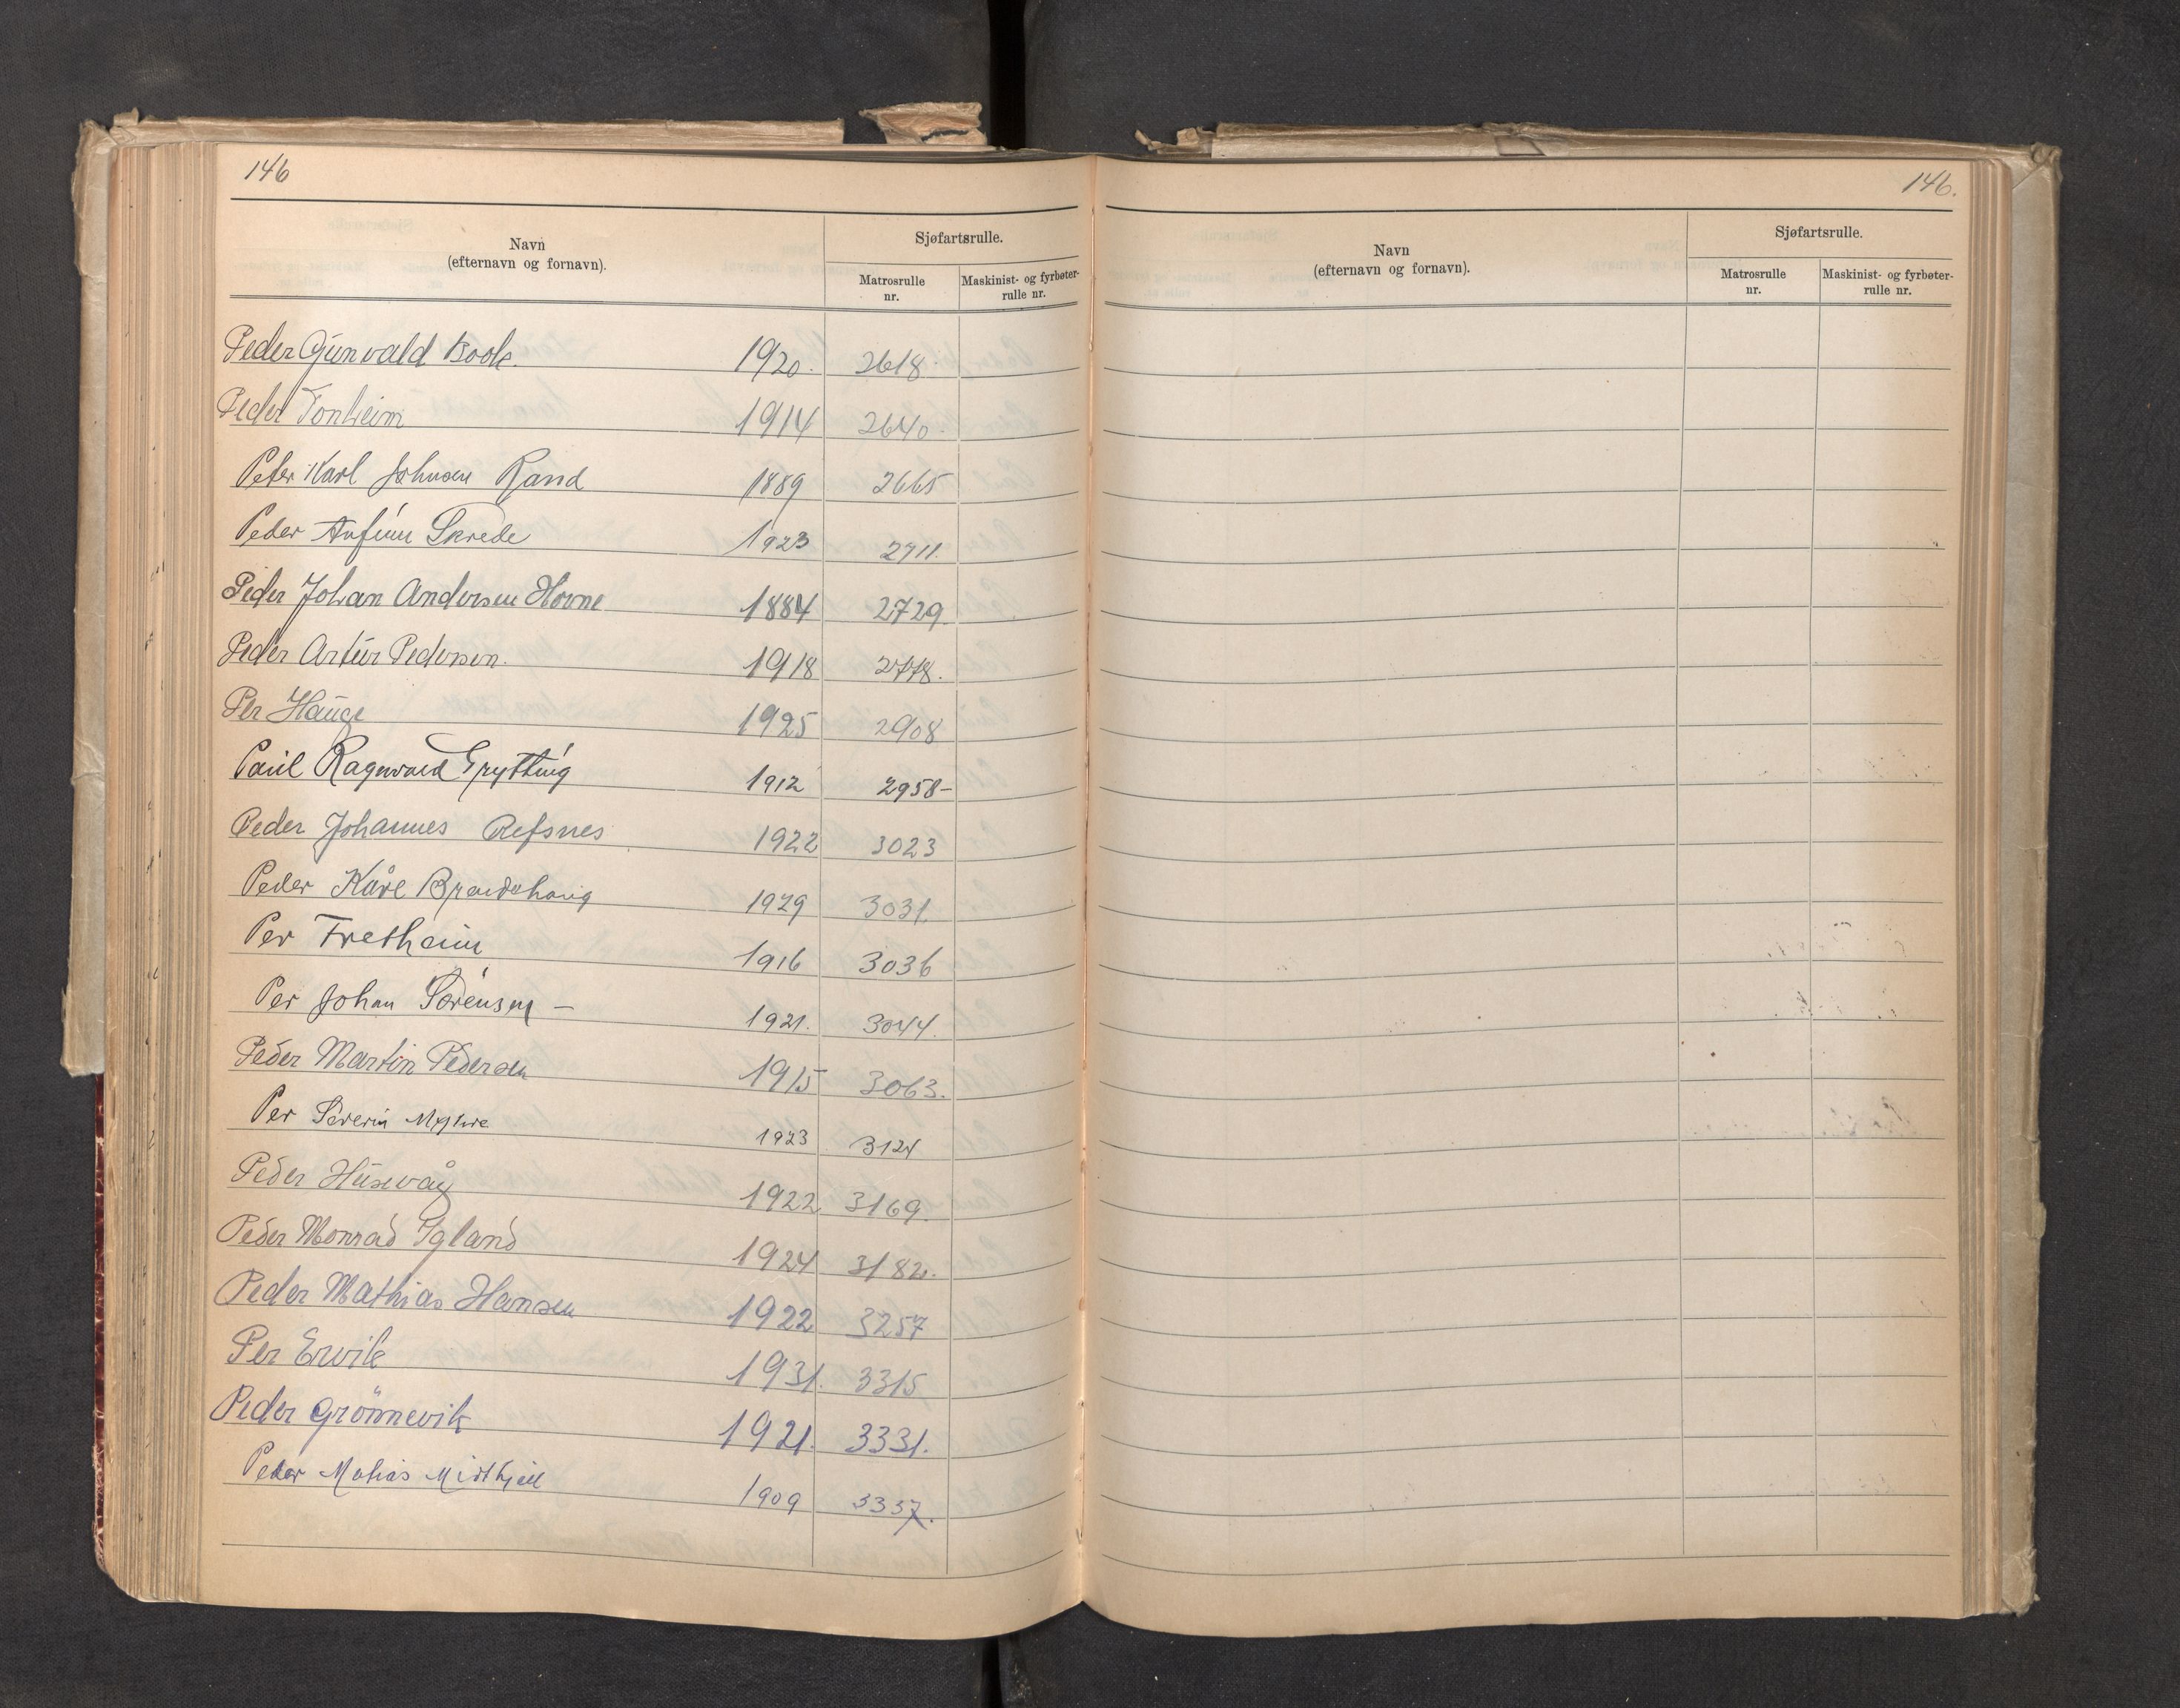 146
Navn
(efternavn og fornavn).
Sjøfartsrulle.
Matrosrulle
nr.
Maskinist- og fyrbøter-
rulle nr.
Peder Gunvald Book. 1920. 2618.
Peder Tonheim 1914 2640.
Peter Karl Johnsen Rand 1889 2665
Peder Anfinn Skrede 1923 2711.
Peder Johan Andersen Hovne 1884 2729.
Peder Artur Pedersen. 1918 2778.
Per Hauge 1925 2908
Paul Ragnvald Grytting 1912 2958-
Peder Johannes Refsnes 1922 3023
Peder Kåre 1929 3031.
Per Fretheim 1916 3036
Per Johan Sørensen - 1921. 3044.
Peder Martin Pedersen 1915 3063.
Per Severin Myhre 1923 3124
Peder Husevåg 1922 3169.
Peder Monrad Igland 1924 3182.
Peder Mathias Hansen 1922 3257
Per Ervik 1931. 3315
Peder Grönnevik 1921. 3331.
Peder Matias Midthjell 1909 3337.
146.
Navn
(efternavn og fornavn).
Sjøfartsrulle.
Matrosrulle
nr.
Maskinist- og fyrbøter-
rulle nr.